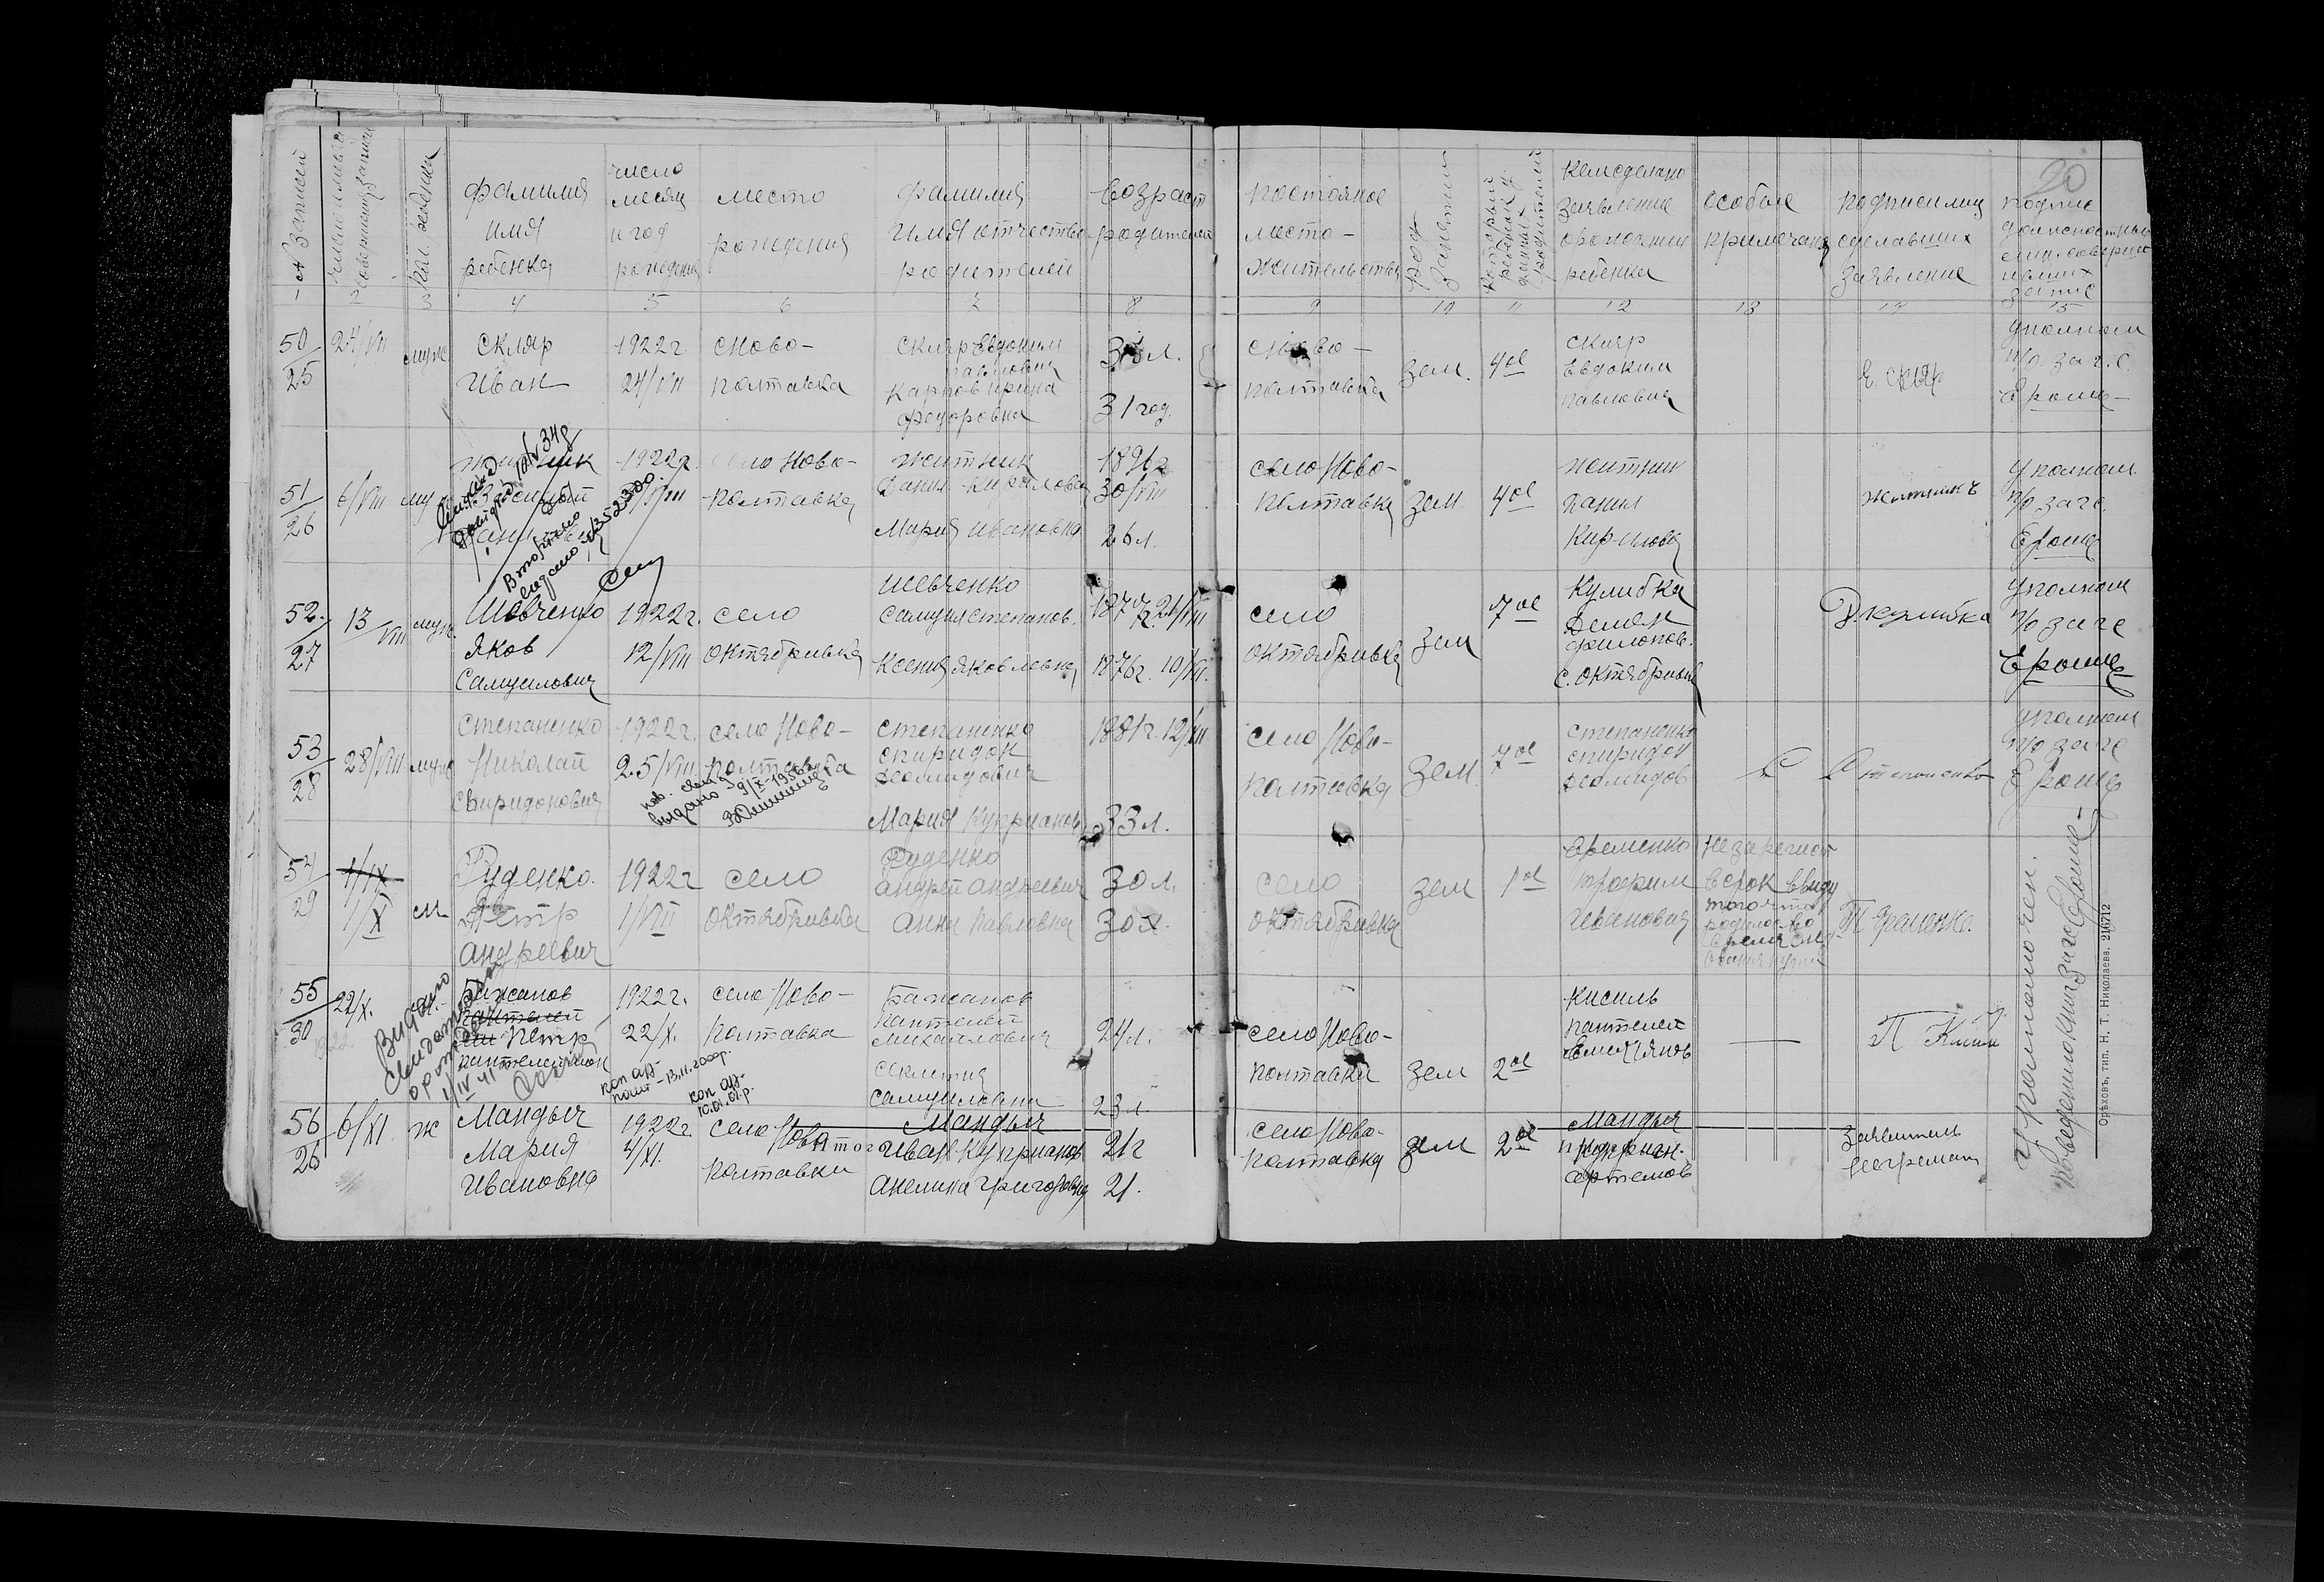 № записей
число месяц
совершения записи
пол ребенка
фамилия
имя
ребенка
число
месяц
и год
рождения
место
рождения
фамилия
имя отчество
родителей
возраст
родителей
постояное
место-
жительства
род
занятий
который
ребенок у
данных
родителей
кемсделано
заявление
орождении
ребенка
особые
примечания
подписи лиц
сделавших
заявление
20
подпис
должностных
лиц соверши
вших
запис
1 2 3 4 5 6 7 8 9 10 11 12 13 14 15
50/25
24/VII
муж.
Скляр
Иван
1922г.
24/VII
с Ново-
полтавка
Скляр Евдоким
павлович
Карпов Ирина
Федоровна
31 год.
с Ново-
полтавка
зем.
4ой
скляр
Евдоким
павлович
Е. скляр
Уполном
п/о заг. с.
Ероше-
51/26
6/VIII
муж
1922г.
село Ново-
полтавка
житник
Данил Кирилович
Мария ивановна
1891г
30/VIII
26 л.
село Ново-
полтавка
зем.
4ой
житник
Данил
Кирилов
Житникъ
Уполном
п/о заге.
Ероше
Вторично
выдано
52./27
13/VIII
муж.
Шевченко
Яков
Самуилович
1922г.
12/VIII
село
октябривка
шевченко
самуил степанов.
Ксения яковлевна
1876г. 10/VII.
село
октябривка
зем
7ой
Кулибка
Демен
филопов.
с. октябривка
Д. кулибка
Уполном
п/о заге
Ероше
53/28
28/VIII
муж
Степаненко
Николай
Спиридонович
1922г.
25/VIII
село Ново-
полтавка
пов. свид.
выдано - 9/X-1956г.
степаненко
спиридон
Деомидович
Мария Куприанов
1881г. 12/XII
33 л.
село Ново-
полтавка
зем
7ой
степаненко
спиридон
деомидов
Степаненко
Уполном
п/о заге
Ероше
54/29
1/IX
1/X
м
Руденко.
Петр
андреевич
1922г
1/VIII
село
октябривка
Руденко
андрей андреевич
анна павловна
30 л.
30 л.
село
октябривка
зем
1ой
Еременко
трофим
Иванович
не зарегист
всрок ввиду
того что
Т Еременко.
55/30
22/X.
1922
Выдано
свидетел
о рожд
1/IV 41
Бажанов
пантелей
Петр
пантелеймон
1922г.
22/X.
село Ново-
полтавка
Бажанов
пантелей
михаилович
секлетия
самуиловна
24 л.
23 л.
село Ново-
полтавки
зем
2ой
Кисиль
пантелей
Емельянов
П Кисиль
коп арх.
пошт - 13.11.2000р.
коп арх.
10.01.01.р.
56/26
6/XI.
ж
Мандыч
Мария
Ивановна
1922г.
4/XI.
село Ново
полтавки
Итого
Мандыч
Иван Куприанов
Акелина Григоровна
21г
21.
село Ново-
полтавка
зем
2ой
Мандыч
Куприан.
артемов
Заявитель
неграмат
Уполномочен.
поведению книг загс Ероше-
Орѣховъ, тип. Н. Т. Николаева. 216712